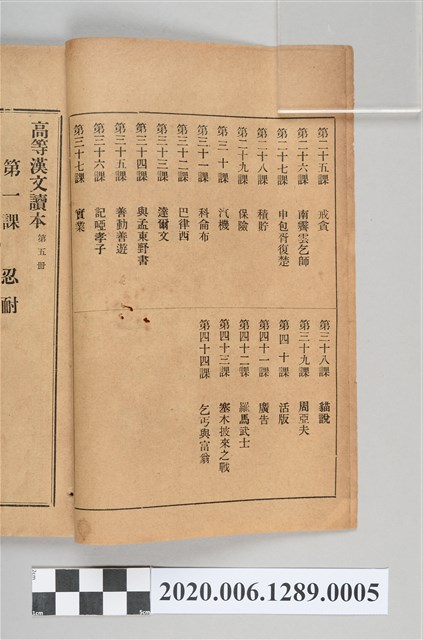 第二十五課　戒貪
第二十六課　南霽雲乞師
第二十七課　申包胥復楚
第二十八課　積貯
第二十九課　保險
第三十課　汽機
第三十一課　科侖布
第三十二課　巴律西
第三十三課　達爾文
第三十四課　與孟東野書
第三十五課　善動善遊
第三十六課　記啞孝子
第三十七課　實業
第三十八課　貓說
第三十九課　周亞夫
第四十課　活版
第四十一課　廣告
第四十二課　羅馬武士
第四十三課　塞木披來之戰
第四十四課　乞丐與富翁
高等漢文讀本　第五册
第一課　忍耐
2020.006.1289.0005